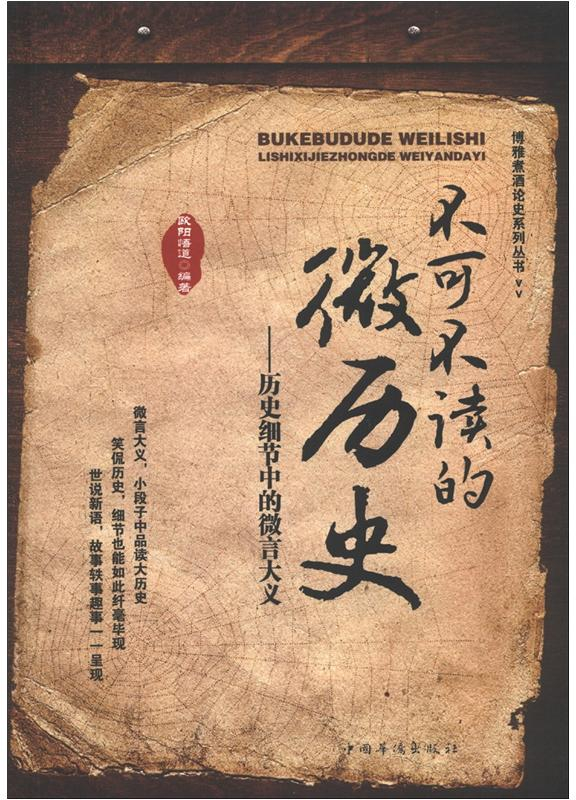 BUKEBUDUDE WEILISHI
LISHIXIJIEZHONGDE WEIYANDAYI
博雅煮酒论史系列丛书>>
不可不读的
微历史
——历史细节中的微言大义
欧阳悟道◎编著
微言大义，小段子中品读大历史
笑侃历史，细节也能如此纤毫毕现
世说新语，故事轶事趣事一一呈现
中国华侨出版社